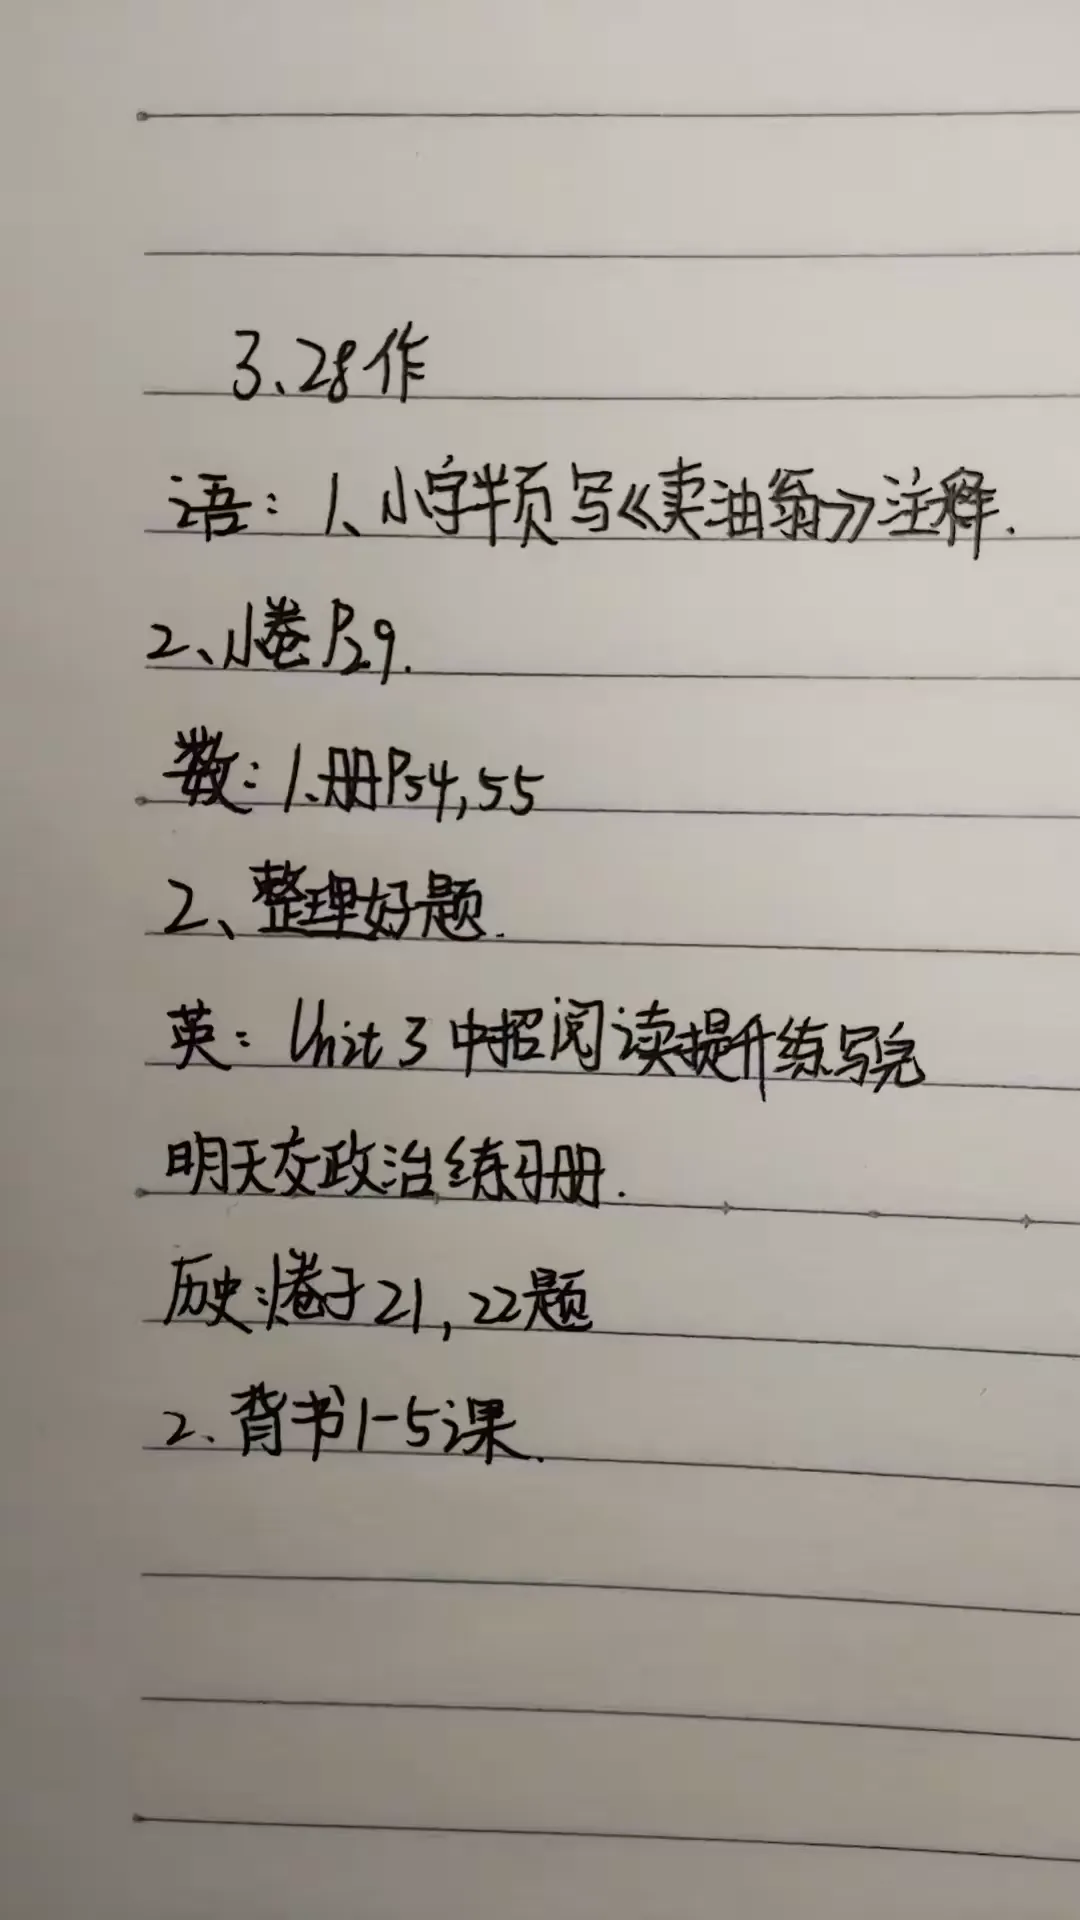 3、28作
语：1、小字半页写《卖油翁》注释.
2、小卷P29.
数：1.册P54,55
2、整理好题.
英：Unit 3 中招阅读提升练写完
明天交政治练习册.
历史：卷子21,22题
2.背书1-5课.